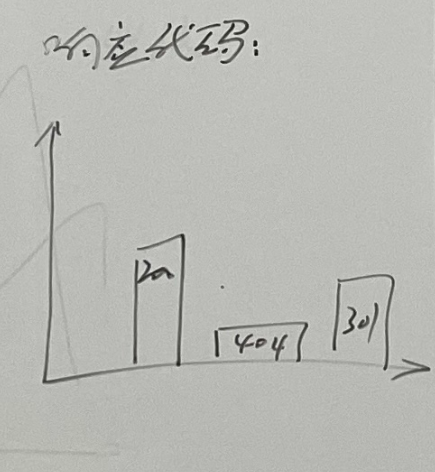 响应代码:
200
404
301